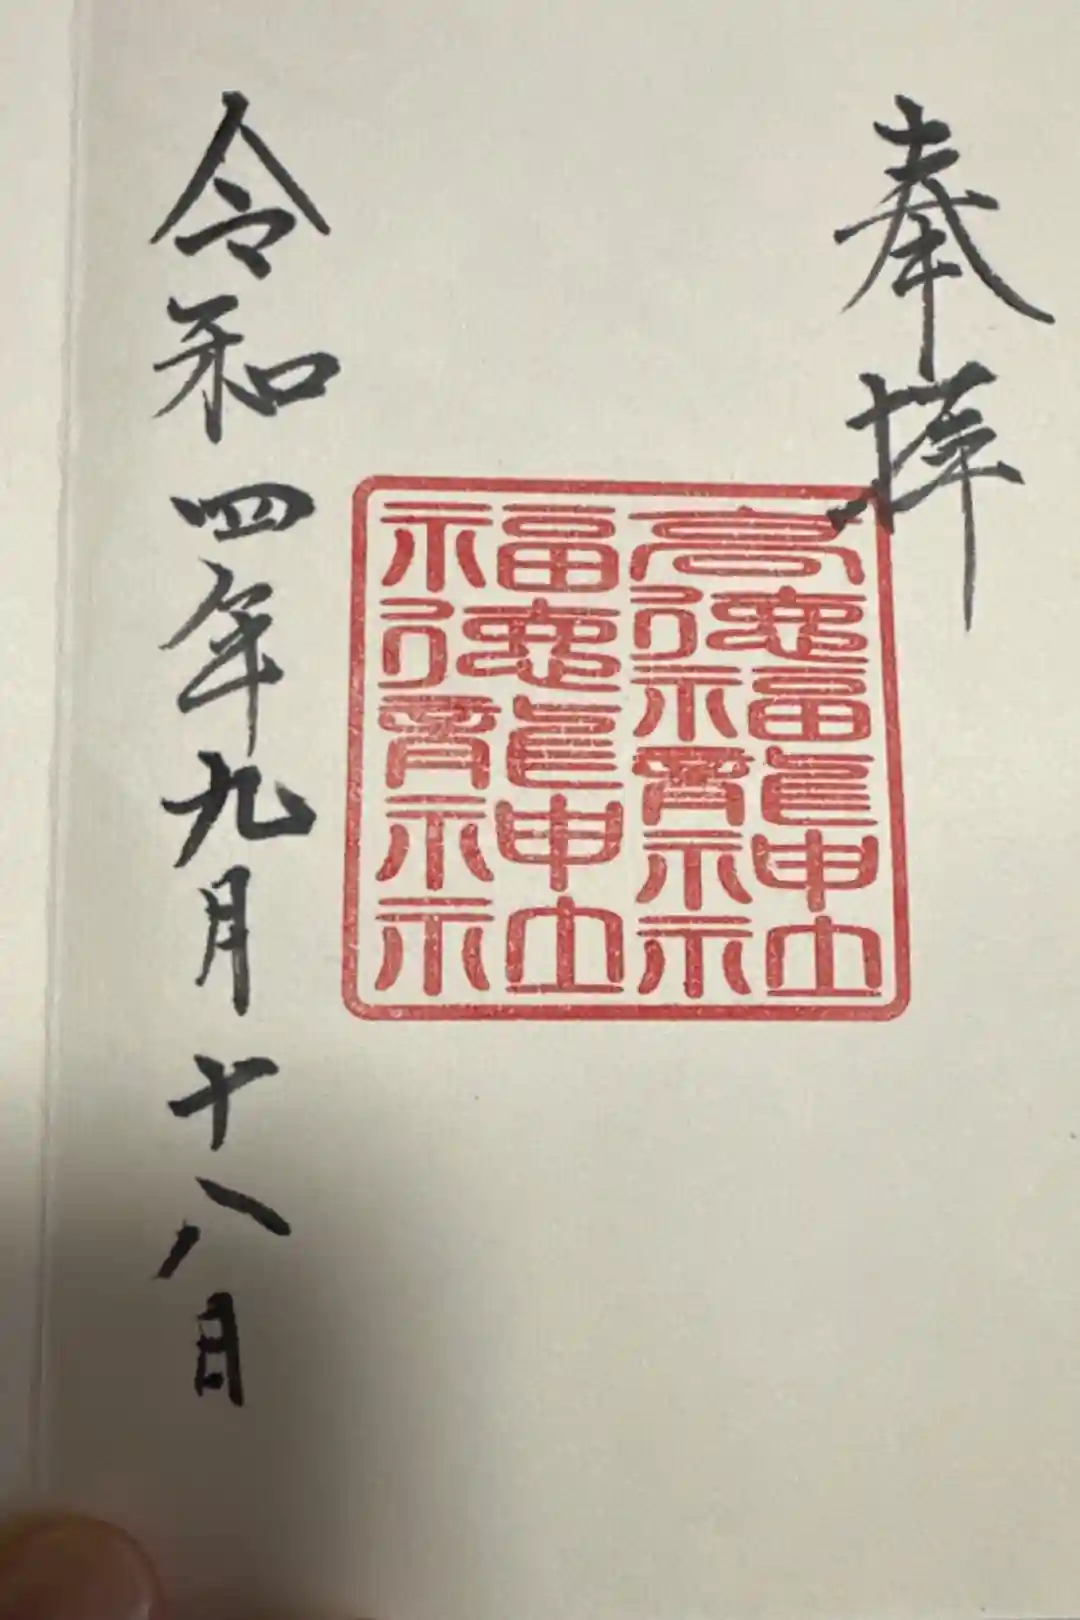 奉拝
高徳福龍神社
福徳龍神社
令和四年九月十八日